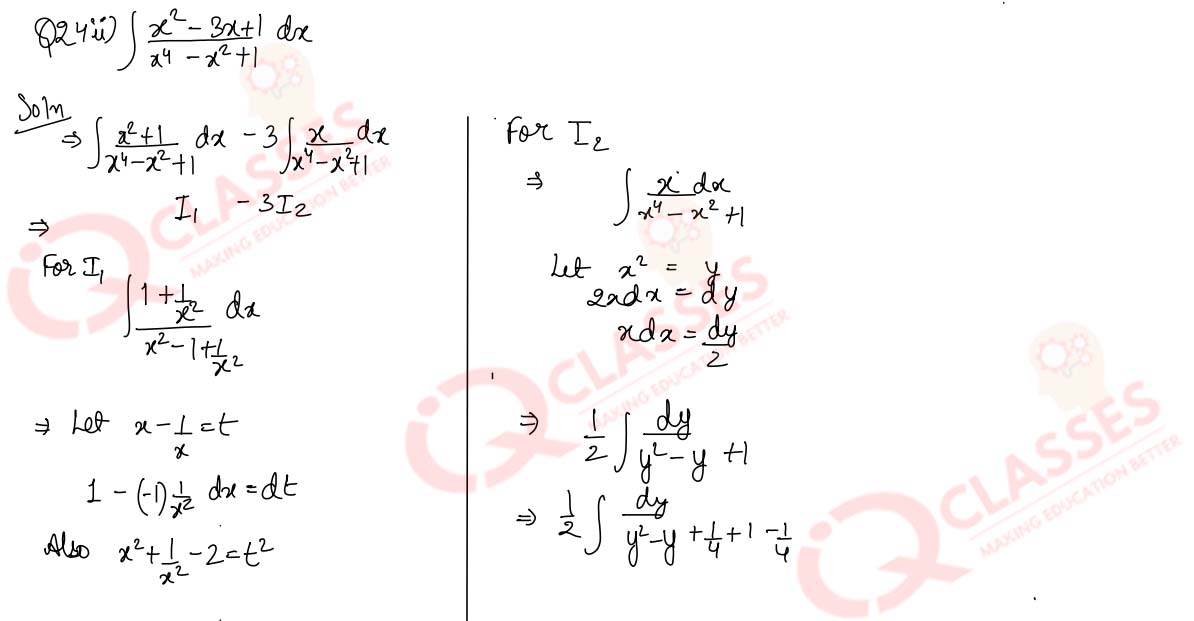 Q24ii) ∫ x² - 3x+1 / x⁴ - x² + 1 dx
Soln
⇒ ∫ x²+1 / x⁴-x²+1 dx - 3∫ x / x⁴-x²+1 dx
⇒ I₁ - 3I₂
For I₁
∫ 1+1/x² / x²-1+1/x² dx
⇒ Let x - 1/x = t
1 - (-1) 1/x² dx = dt
Also x² + 1/x² - 2 = t²
For I₂
⇒ ∫ x dx / x⁴ - x² + 1
Let x² = y
2xdx = dy
xdx = dy/2
⇒ 1/2 ∫ dy / y² - y + 1
⇒ 1/2 ∫ dy / y² - y + 1/4 + 1 - 1/4
iQ CLASSES
MAKING EDUCATION BETTER
iQ CLASSES
MAKING EDUCATION BETTER
iQ CLASSES
MAKING EDUCATION BETTER